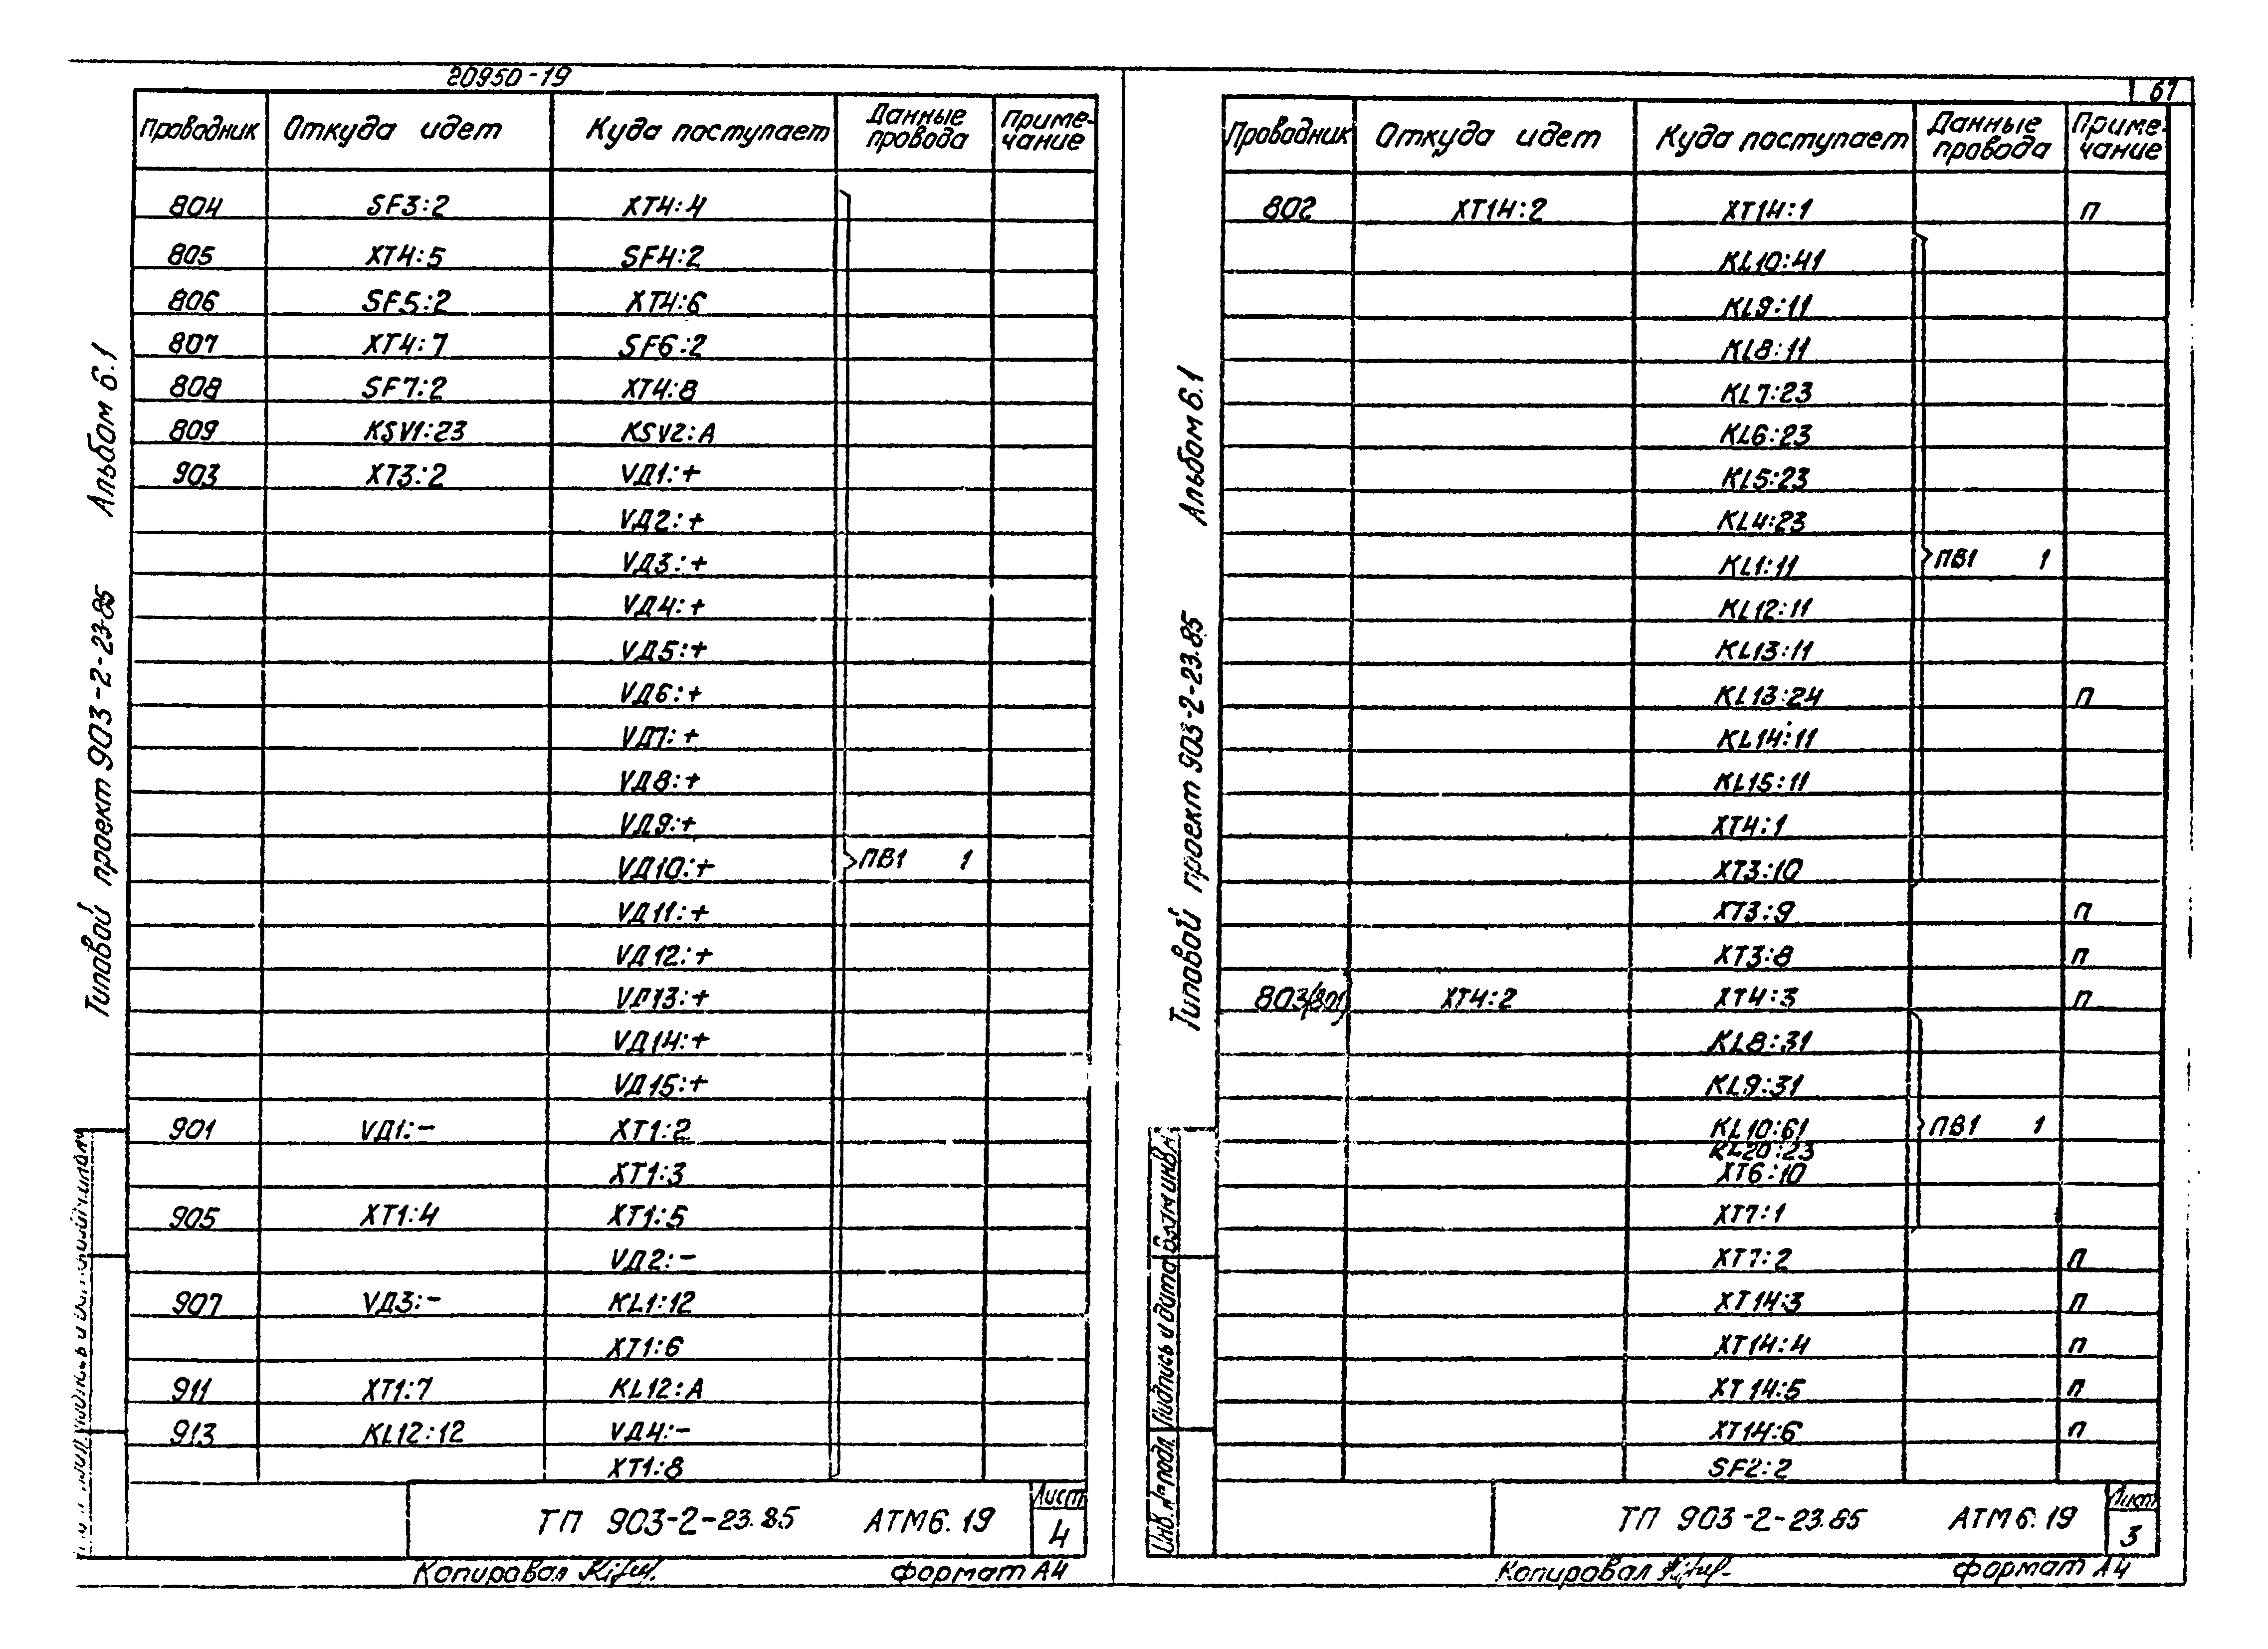 20950-19
Проводник Откуда идет Куда поступает Данные провода Приме-чание
804 SF3:2 XT4:4
805 XT4:5 SF4:2
806 SF5:2 XT4:6
807 XT4:7 SF6:2
808 SF7:2 XT4:8
809 KSV1:23 KSV2:A
903 XT3:2 VД1:+
VД2:+
VД3:+
VД4:+
VД5:+
VД6:+
VД7:+
VД8:+
VД9:+
VД10:+ ПВ1 1
VД11:+
VД12:+
VД13:+
VД14:+
VД15:+
901 VД1:- XT1:2
XT1:3
905 XT1:4 XT1:5
VД2:-
907 VД3:- KL1:12
XT1:6
911 XT1:7 KL12:A
913 KL12:12 VД4:-
XT1:8
ТП 903-2-23.85 АТМ6.19 Лист 4
Копировал Формат А4
Типовой проект 903-2-23.85 Альбом 6.1
61
Проводник Откуда идет Куда поступает Данные провода Приме-чание
802 XT14:2 XT14:1 П
KL10:41
KL9:11
KL8:11
KL7:23
KL6:23
KL5:23
KL4:23
KL1:11 ПВ1 1
KL12:11
KL13:11
KL13:24 П
KL14:11
KL15:11
XT4:1
XT3:10
XT3:9 П
XT3:8 П
803(801) XT4:2 XT4:3 П
KL8:31
KL9:31
KL10:61 ПВ1 1
KL20:23
XT6:10
XT7:1
XT7:2 П
XT14:3 П
XT14:4 П
XT14:5 П
XT14:6 П
SF2:2
ТП 903-2-23.85 АТМ6.19 Лист 3
Копировал Формат А4
Типовой проект 903-2-23.85 Альбом 6.1
Инв.№подл. Подпись и дата Взам инв.№